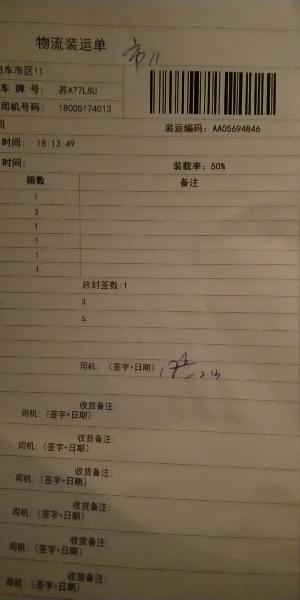 物流装运单
市11
车市区11
车 牌 号: 苏A77L8U
司机号码: 18005174013
装运编码: AA05694846
时间: 18:13:49
时间: 装载率: 50%
箱数 备注
1
3
1
1
1
1
总封签数:1
3.
6.
司机: (签字+日期)
收货备注:
司机:(签字+日期)
收货备注:
司机:(签字+日期)
收货备注:
司机:(签字+日期)
收货备注:
司机:(签字+日期)
收货备注:
司机:(签字+日期)
收货备注:
司机:(签字+日期)